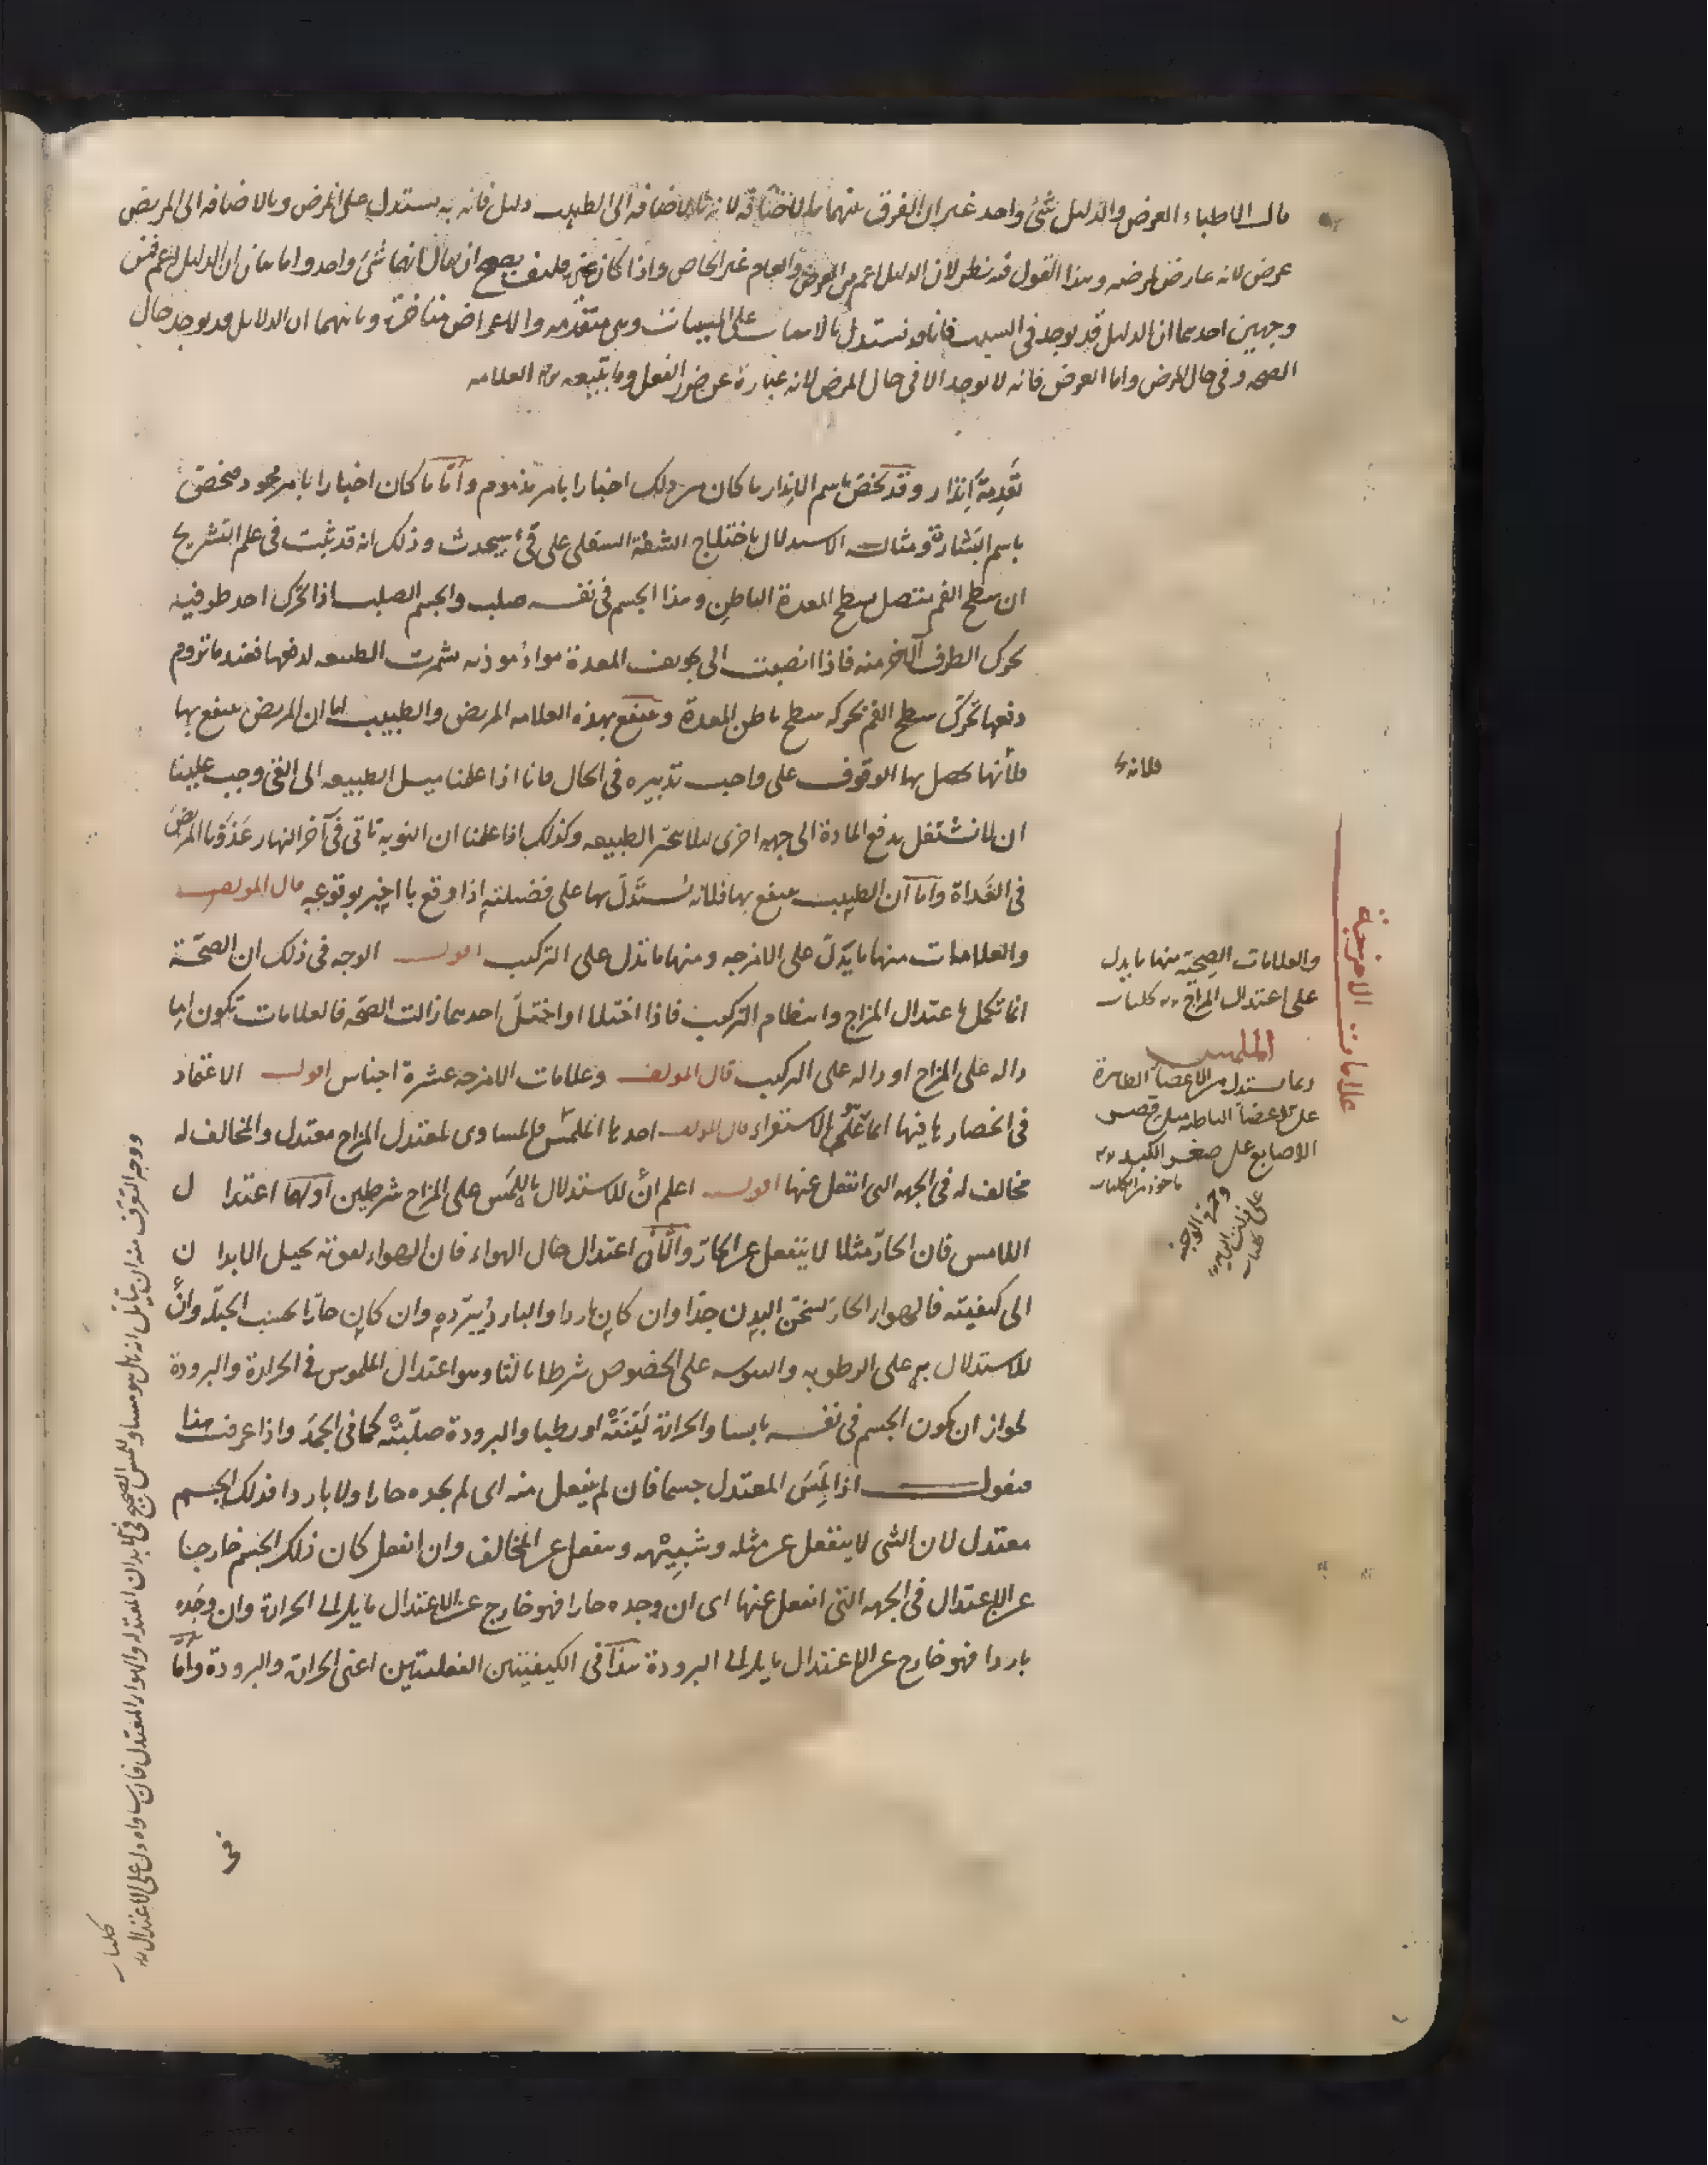 قالت الاطباء العرض والدليل شئ واحد غير ان الفرق بينهما بالاضافة لانه بالاضافه الى الطبيب دليل فانه به يستدل على المرض وبالاضافه الى المريض
عرض لانه عارض لمرضه وهذا القول فيه نظر لان الدليل اعم من العرض والعام غير الخاص واذا كان فكيف يصح ان يقال انهما شئ واحد واما بيان ان الدليل اعم فمن
وجهين احدهما ان الدليل قد يوجد فى السبب فانا قد نستدل بالاسباب على المسببات وهى متقدمه والاعراض متاخرة وثانيهما ان الدلايل قد يوجد حال
الصحه وفى حال المرض واما العرض فانه لا يوجد الا فى حال المرض لانه عبارة عن ضرر الفعل وما يتبعه العلامه
تقدمة انذار وقد يخص باسم الانذار ما كان من ذلك اخبارا بامر مذموم واما ما كان اخبارا بامر محمود فيخص
باسم البشارة ومثاله الاستدلال باختلاج الشفة السفلى على قئ سيحدث وذلك انه قد ثبت فى علم التشريح
ان سطح الفم متصل بسطح المعدة الباطن وهذا الجسم فى نفسه صلب والجسم الصلب اذا تحرك احد طرفيه
تحرك الطرف الآخر منه فاذا انصبت الى تجويف المعدة مواد موذيه شمرت الطبيعه لدفعها فعند ما تروم
دفعها تحرك سطح الفم بحركه سطح باطن المعدة وينتفع بهذه العلامه المريض والطبيب اما ان المريض ينتفع بها
فلأنها يحصل بها الوقوف على واجب تدبيره فى الحال فانا اذا علمنا ميل الطبيعه الى القئ وجب علينا
ان لا نشتغل بدفع المادة الى جهه اخرى لئلا تتحير الطبيعه وكذلك اذا علمنا ان النوبه تاتى فى آخر النهار غذونا المريض
فى الغداة واما ان الطبيب ينتفع بها فلانه يستدل بها على فضيلته اذا وقع ما اخبر بوقوعه قال المولف
والعلامات منها ما يدل على الامزجه ومنها ما تدل على التركيب اقول الوجه فى ذلك ان الصحة
انما تكمل باعتدال المزاج وانتظام التركيب فاذا اختلا او اختل احدهما زالت الصحه فالعلامات تكون اما
داله على المزاج او داله على التركيب قال المولف وعلامات الامزجه عشرة اجناس اقول الاعتماد
فى انحصارها فيها انما هو على الاستقراء قال المولف احدها الملمس فالمساوى لمعتدل المزاج معتدل والمخالف له
مخالف له فى الجهه التى انفعل عنها اقول اعلم أن للاستدلال باللمس على المزاج شرطين اولهما اعتدا ل
اللامس فان الحار مثلا لا ينفعل عن الحار والثانى اعتدال حال الهواء فان الهواء لقوته يحيل الابدا ن
الى كيفيته فالهواء الحار يسخن البدن جدا وان كان باردا والبارد يبرده وان كان حارا بحسب الجبلّه وان
للاستدلال به على الرطوبه واليبوسه على الخصوص شرطا ثالثا وهو اعتدال الملموس فى الحرارة والبرودة
لجواز ان يكون الجسم فى نفسه يابسا والحرارة لينته او رطبا والبرودة صلبته كما فى الجمد واذا عرفت هذا
فنقول اذا لمس المعتدل جسما فان لم ينفعل منه اى لم يجده حارا ولا باردا فذلك الجسم
معتدل لان الشى لا ينفعل عن مثله وشبيهه وينفعل عن المخالف وان انفعل كان ذلك الجسم خارجا
عن الاعتدال فى الجهه التى انفعل عنها اى ان وجده حارا فهو خارج عن الاعتدال مايل الى الحرارة وان وجده
باردا فهو خارج عن الاعتدال مايل الى البرودة هذا فى الكيفيتين الفعليتين اعنى الحرارة والبرودة واما
فى
فلانه
علامات الامزجة
والعلامات الصحيّه منها ما يدل
على اعتدال المزاج كليات
الملمس
ربما يستدل من الاعضاء الظاهرة
على الاعضاء الباطنه مثل قصر
الاصابع على صغر الكبد
ماخوذ من الكليات
وحمرة الوجنه
على ذات الريه
كليات
ووجه التعرف منه ان يتأمل انه هل هو مساو للمس الصحيح فى البلدان المعتدله والهواء المعتدل فان ساواه دل على الاعتدال
كليات